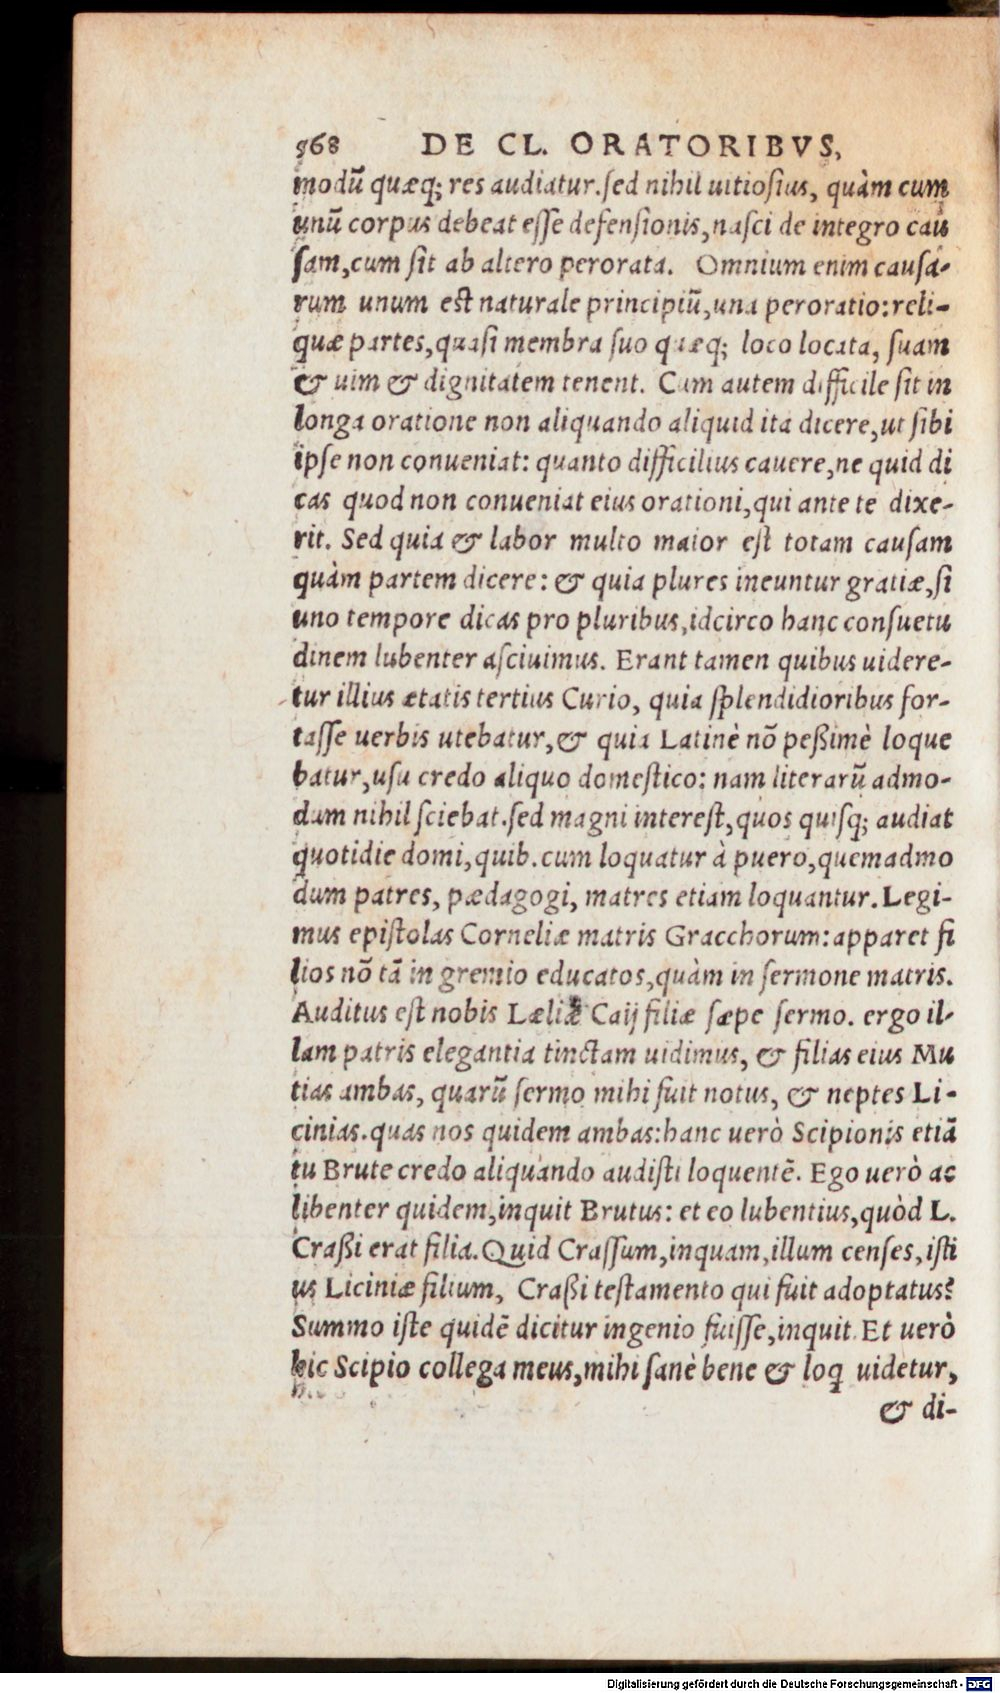 568 DE CL. ORATORIBVS,
modũ quæq; res audiatur. sed nihil uitiosius, quàm cum
unũ corpus debeat esse defensionis, nasci de integro cau
sam, cum sit ab altero perorata. Omnium enim causa-
rum unum est naturale principiũ, una peroratio: reli-
quæ partes, quasi membra suo quæq; loco locata, suam
& uim & dignitatem tenent. Cum autem difficile sit in
longa oratione non aliquando aliquid ita dicere, ut sibi
ipse non conueniat: quanto difficilius cauere, ne quid di
cas quod non conueniat eius orationi, qui ante te dixe-
rit. Sed quia & labor multo maior est totam causam
quàm partem dicere: & quia plures ineuntur gratiæ, si
uno tempore dicas pro pluribus, idcirco hanc consuetu
dinem lubenter asciuimus. Erant tamen quibus uidere-
tur illius ætatis tertius Curio, quia splendidioribus for-
tasse uerbis utebatur, & quia Latinè nõ peßimè loque
batur, usu credo aliquo domestico: nam literarũ admo-
dum nihil sciebat. sed magni interest, quos quisq; audiat
quotidie domi, quib. cum loquatur à puero, quemadmo
dum patres, pædagogi, matres etiam loquantur. Legi-
mus epistolas Corneliæ matris Gracchorum: apparet fi
lios nõ tã in gremio educatos, quàm in sermone matris.
Auditus est nobis Læliæ Caij filiæ sæpe sermo. ergo il-
lam patris elegantia tinctam uidimus, & filias eius Mu
tias ambas, quarũ sermo mihi fuit notus, & neptes Li-
cinias. quas nos quidem ambas: hanc uerò Scipionis etiã
tu Brute credo aliquando audisti loquentẽ. Ego uerò ac
libenter quidem, inquit Brutus: et eo lubentius, quòd L.
Craßi erat filia. Quid Crassum, inquam, illum censes, isti
us Liciniæ filium, Craßi testamento qui fuit adoptatus?
Summo iste quidẽ dicitur ingenio fuisse, inquit. Et uerò
hic Scipio collega meus, mihi sanè bene & loq uidetur,
& di-
Digitalisierung gefördert durch die Deutsche Forschungsgemeinschaft - DFG